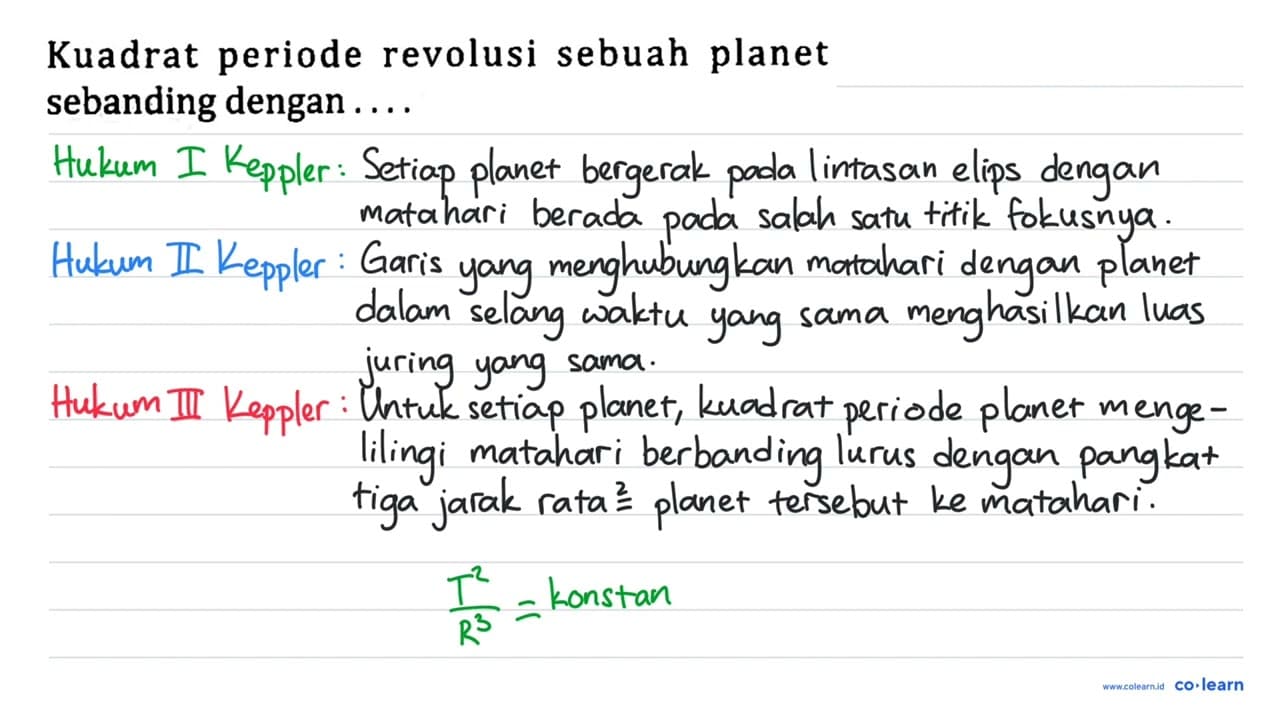 Kuadrat periode revolusi sebuah planet
sebanding dengan ....
Hukum I Keppler: Setiap planet bergerak pada lintasan elips dengan
matahari berada pada salah satu titik fokusnya.
Hukum II Keppler: Garis yang menghubungkan matahari dengan planet
dalam selang waktu yang sama menghasilkan luas
juring yang sama.
Hukum III Keppler: Untuk setiap planet, kuadrat periode planet menge-
lilingi matahari berbanding lurus dengan pangkat
tiga jarak rata² planet tersebut ke matahari.
T²/R³ = konstan
www.colearn.id co·learn